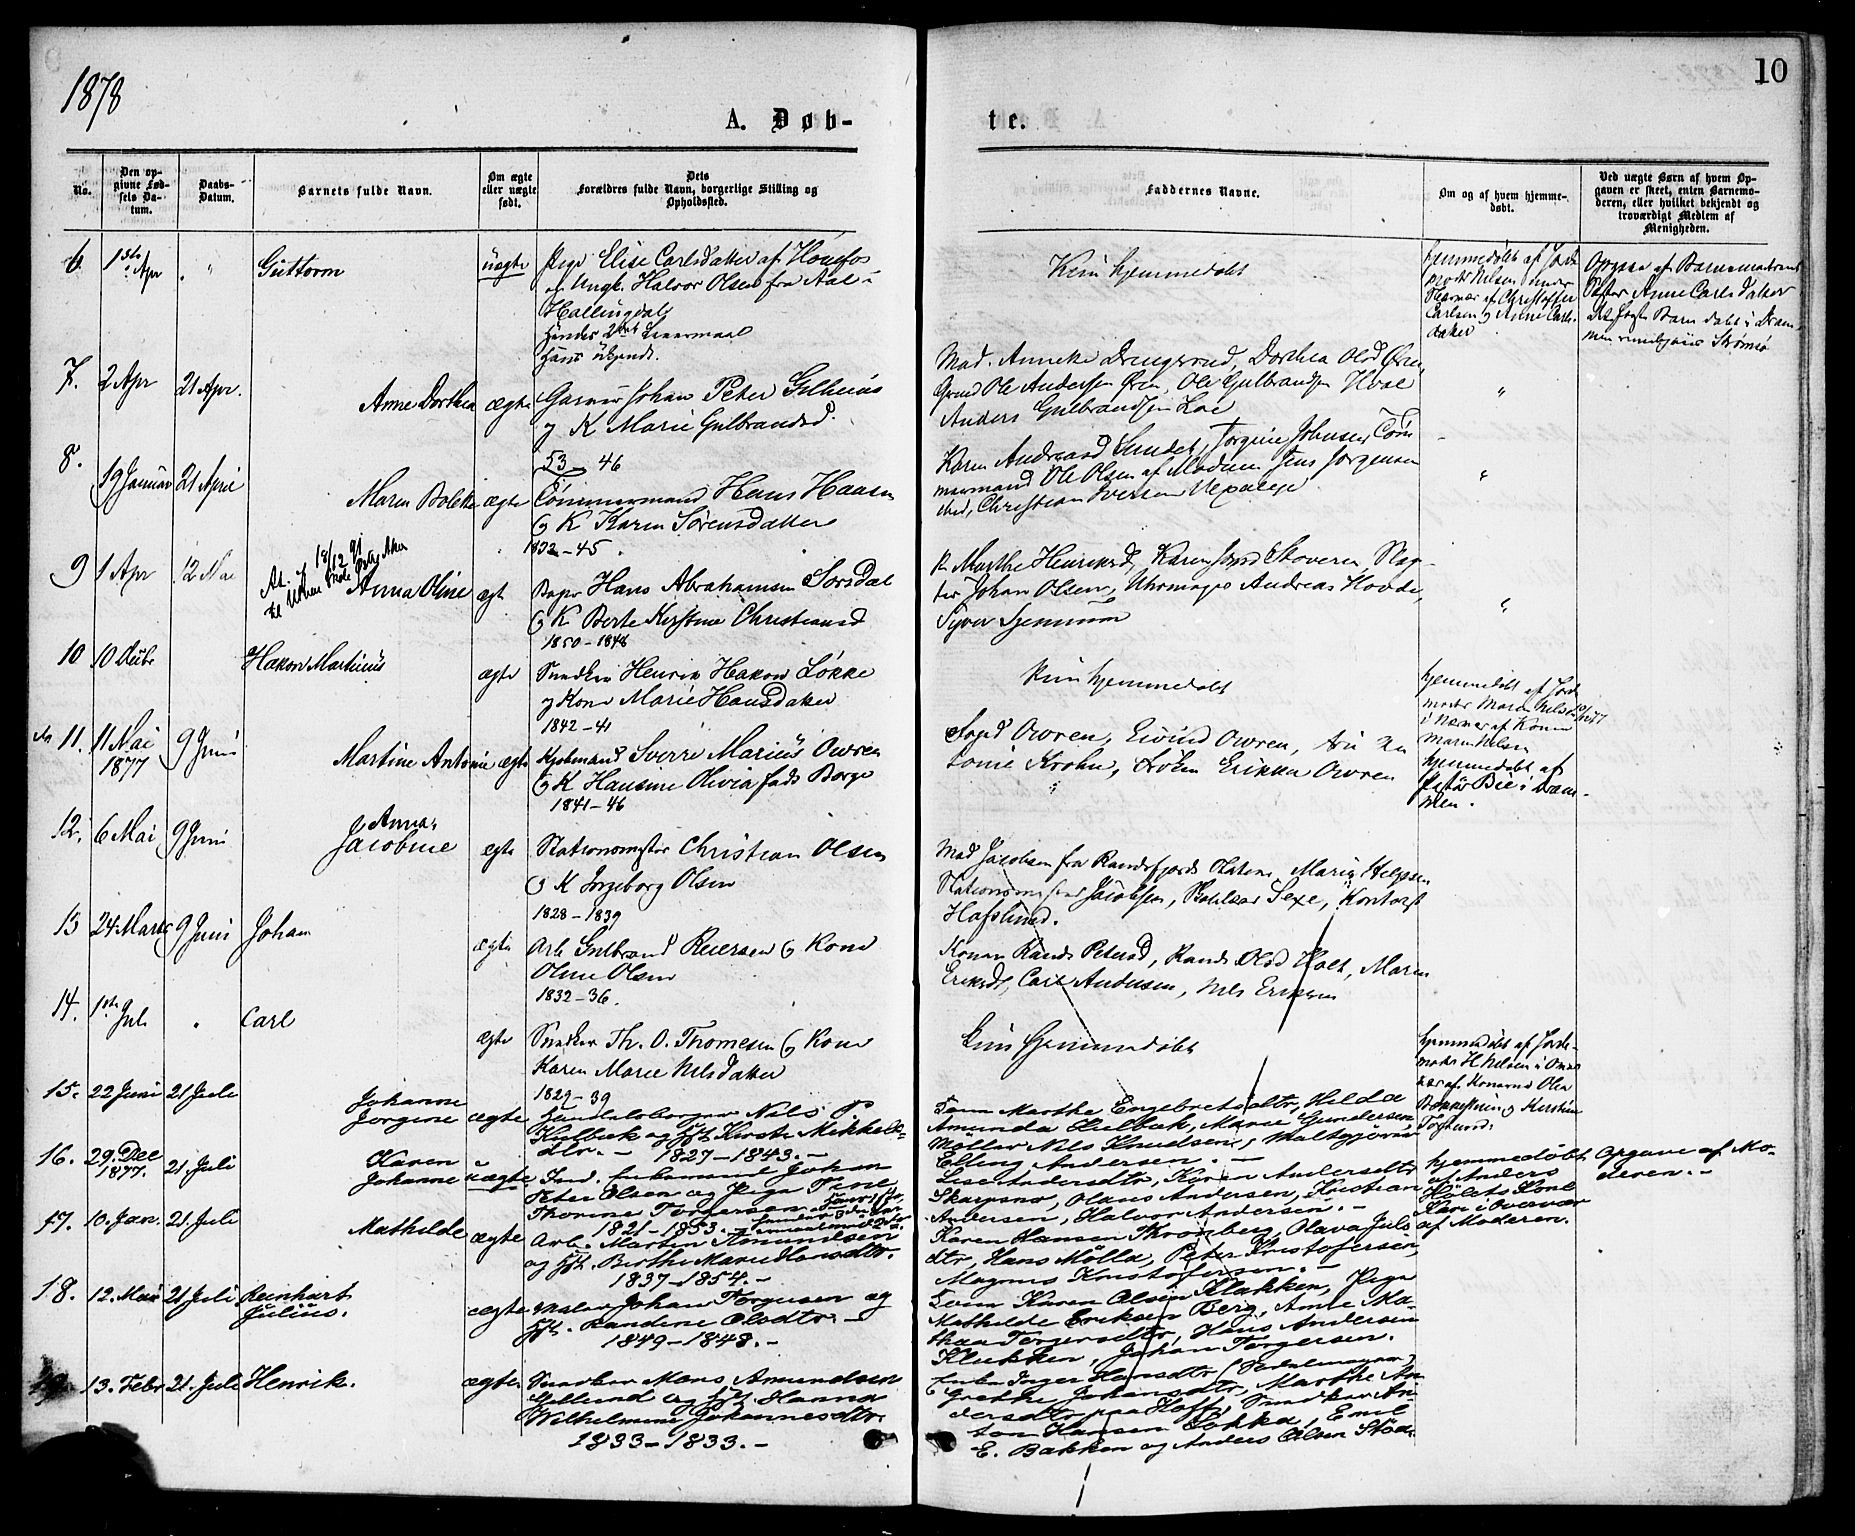 1878
10
A. Døb-
te.
No.
Den op-
givne Fød-
sels Da-
tum.
Daabs-
Datum.
Barnets fulde Navn.
Om ægte
eller uægte
født.
Dets
Forældres fulde Navn, borgerlige Stilling og
Opholdssted.
Faddernes Navne.
Om og af hvem hjemme-
døbt.
Ved uægte Børn af hvem Op-
gaven er skeet, enten Barnemo-
deren, eller hvilket bekjendt og
troværdigt Medlem af
Menigheden.
6 1ste Apr " Guttorm uægte Pige Elise Carlsdatter af Hønefos
og Ungk. Halvor Olsen fra Aal i
Hallingdal
Hendes 2det Leiermaal
Hans ubekjendt.
Kun hjemmedøbt
hjemmedøbt af Jorde
moder Nilsen under
Nærvær af Christoffer
Carlsen og Anne Carls-
datter
Opgave af Barnemoderens
Søster Anne Carlsdatter
7. 2 Apr 21 Apr. Anne Dorthea ægte Garver Johan Peter Gilhuus
og K Marie Gulbrandsd.
53 – 46
Mad. Anneke Drengsrud, Dorthea Olsd Øren
Ole Andersen Øren, Ole Gulbrandsen Hval
Anders Gulbrandsen Loe
"
8. 19 Januar 21 April Maren Bolette ægte Tømmermand Hans Hansen
og K Karen Sørensdatter
1832 – 45.
Karen Andreasd Sundet, Jørgine Johnsen, Tøm
mermand Ole Olsen af Modum Jens Jørgensen
Christian Iversen
"
9 1 Apr 12 Mai Anna Oline ægt Hans Abrahamsen Sørsdal
og K Berte Kirstine Christiansd
1850 – 1848
18/12 91
K Marthe Henriksd, Karen Stoveren, Slag-
ter Johan Olsen, Uhrmager Andreas Hovde,
Syver
"
10 10 Hakon Martinius ægte Snedker Henrik Hakon Løkke
og Kone Marie Hansdatter
1842 – 41
Kun hjemmedøbt
hjemmedøbt af Jorde
moder Maren Nilsen
i Nærvær af Konen
Maren Nilsen
11. 11 Mai
1877 9 Juni Martine Antonie ægte Kjøbmand Sverre Marius Owren
og K Hansine Olivia født Borge
1841 – 46
Owren, Eivind Owren, An
tonie Krohn, Frøken Erikka Owren
hjemmedøbt af
Pastor Bie i Dram-
men.
12. 6 Mai 9 Juni Anna
Jacobine ægte Stationsmester Christian Olsen
og K Ingeborg Olsen
1828 – 1839
Mad Jacobsen fra Randsfjords Station, Marie Helgesen
Stationsmester Jacobsen, Sexe, Kontorist
Hafslund.
13 24 Marts 9 Juni Johan ægte Arb Gulbrand Reiersen og Kone
Oline Olsen
1832 – 36.
Konen Randi Petersd, Randi Olsd Holt, Maren
Eriksd, Carl Andersen, Nils Eriksen
14. 1ste Juli " Carl ægte Snedker Th. O. Thomesen og Kone
Karen Marie Nilsdatter
1829 – 39
Kun hjemmedøbt
hjemmedøbt af Jorde-
moder H Nilsen i
vær af Konerne Olea
og Kirstine
15. 22 Juni 21 Juli Johanne
Jorgine ægte Handelsborger Nils P.
Hulbæk og Hst. Kirsti Mikkels-
dtr. – 1827 – 1843. –
Konen Marthe Engebretsdtr, Hilda
Amunda Hulbæk, Marie Gundersen,
Møller Nils Knudsen, Maltgjører
Elling Andersen. –
16. 29. Dec
1877. 21. Juli Karen
Johanne uægte Ind. Enkemand Johan
Peter Olsen og Pige Tine
Thorine Torgersen.
1821 – 1853. –
Lise Andersdtr, Karen Andersdtr
Skarpsno, Olaus Andersen, Kristian
Andersen, Halvor Andersen. –
hjemmedøbt
af Anders
Hølets Kone
Kari i Overvær
af Moderen.
Opgave af Mo-
deren. –
17. 10. Jan. 21. Juli Mathilde ægte Arb. Martin Amundsen
og Hst. Berthe Marie Hansdtr.
1837 – 1854. –
Karen Hansen Thronberg, Olava Juls
dtr, Hans Mølla, Peter Kristofersen,
Magnus Kristofersen. –
18. 12. Mai 21 Juli Reinhart
Julius. ægte Maler Johan Torgersen og
Hst. Randine Olsdtr. –
1849 – 1848. –
Konen Karen Olsen Klækken, Pige
Mathilde Eriksen Berg, Anne Ma-
thea Torgersdtr, Hans Andersen
Klækken, Johan Torgersen.
13. Febr 21. Juli Henrik. ægte Snedker Mons Amundsen
Gullund og Hst. Hanna
Wilhelmine Johannesdtr.
1833 – 1833. –
Enke Inger Hansdtr
Grethe Johansdtr, Marthe An-
dersdtr paa Hoff, Snedker An-
ton Hansen Løkka, Emil
E. Bakken og Anders Olsen